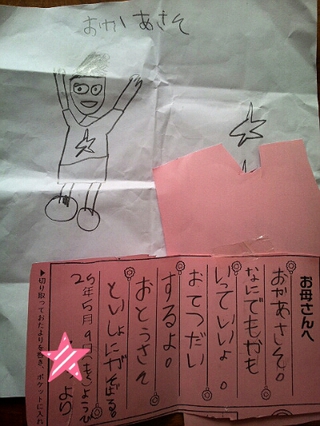 おかあさそ
お母さんへ
おかあさそ。
なにでもかも
いっていいよ。
おてつだい
するよ。
おとうさそ
といしょに
25年5月9日
より
▶切り取っておたよりを書き、ポケットに入れ